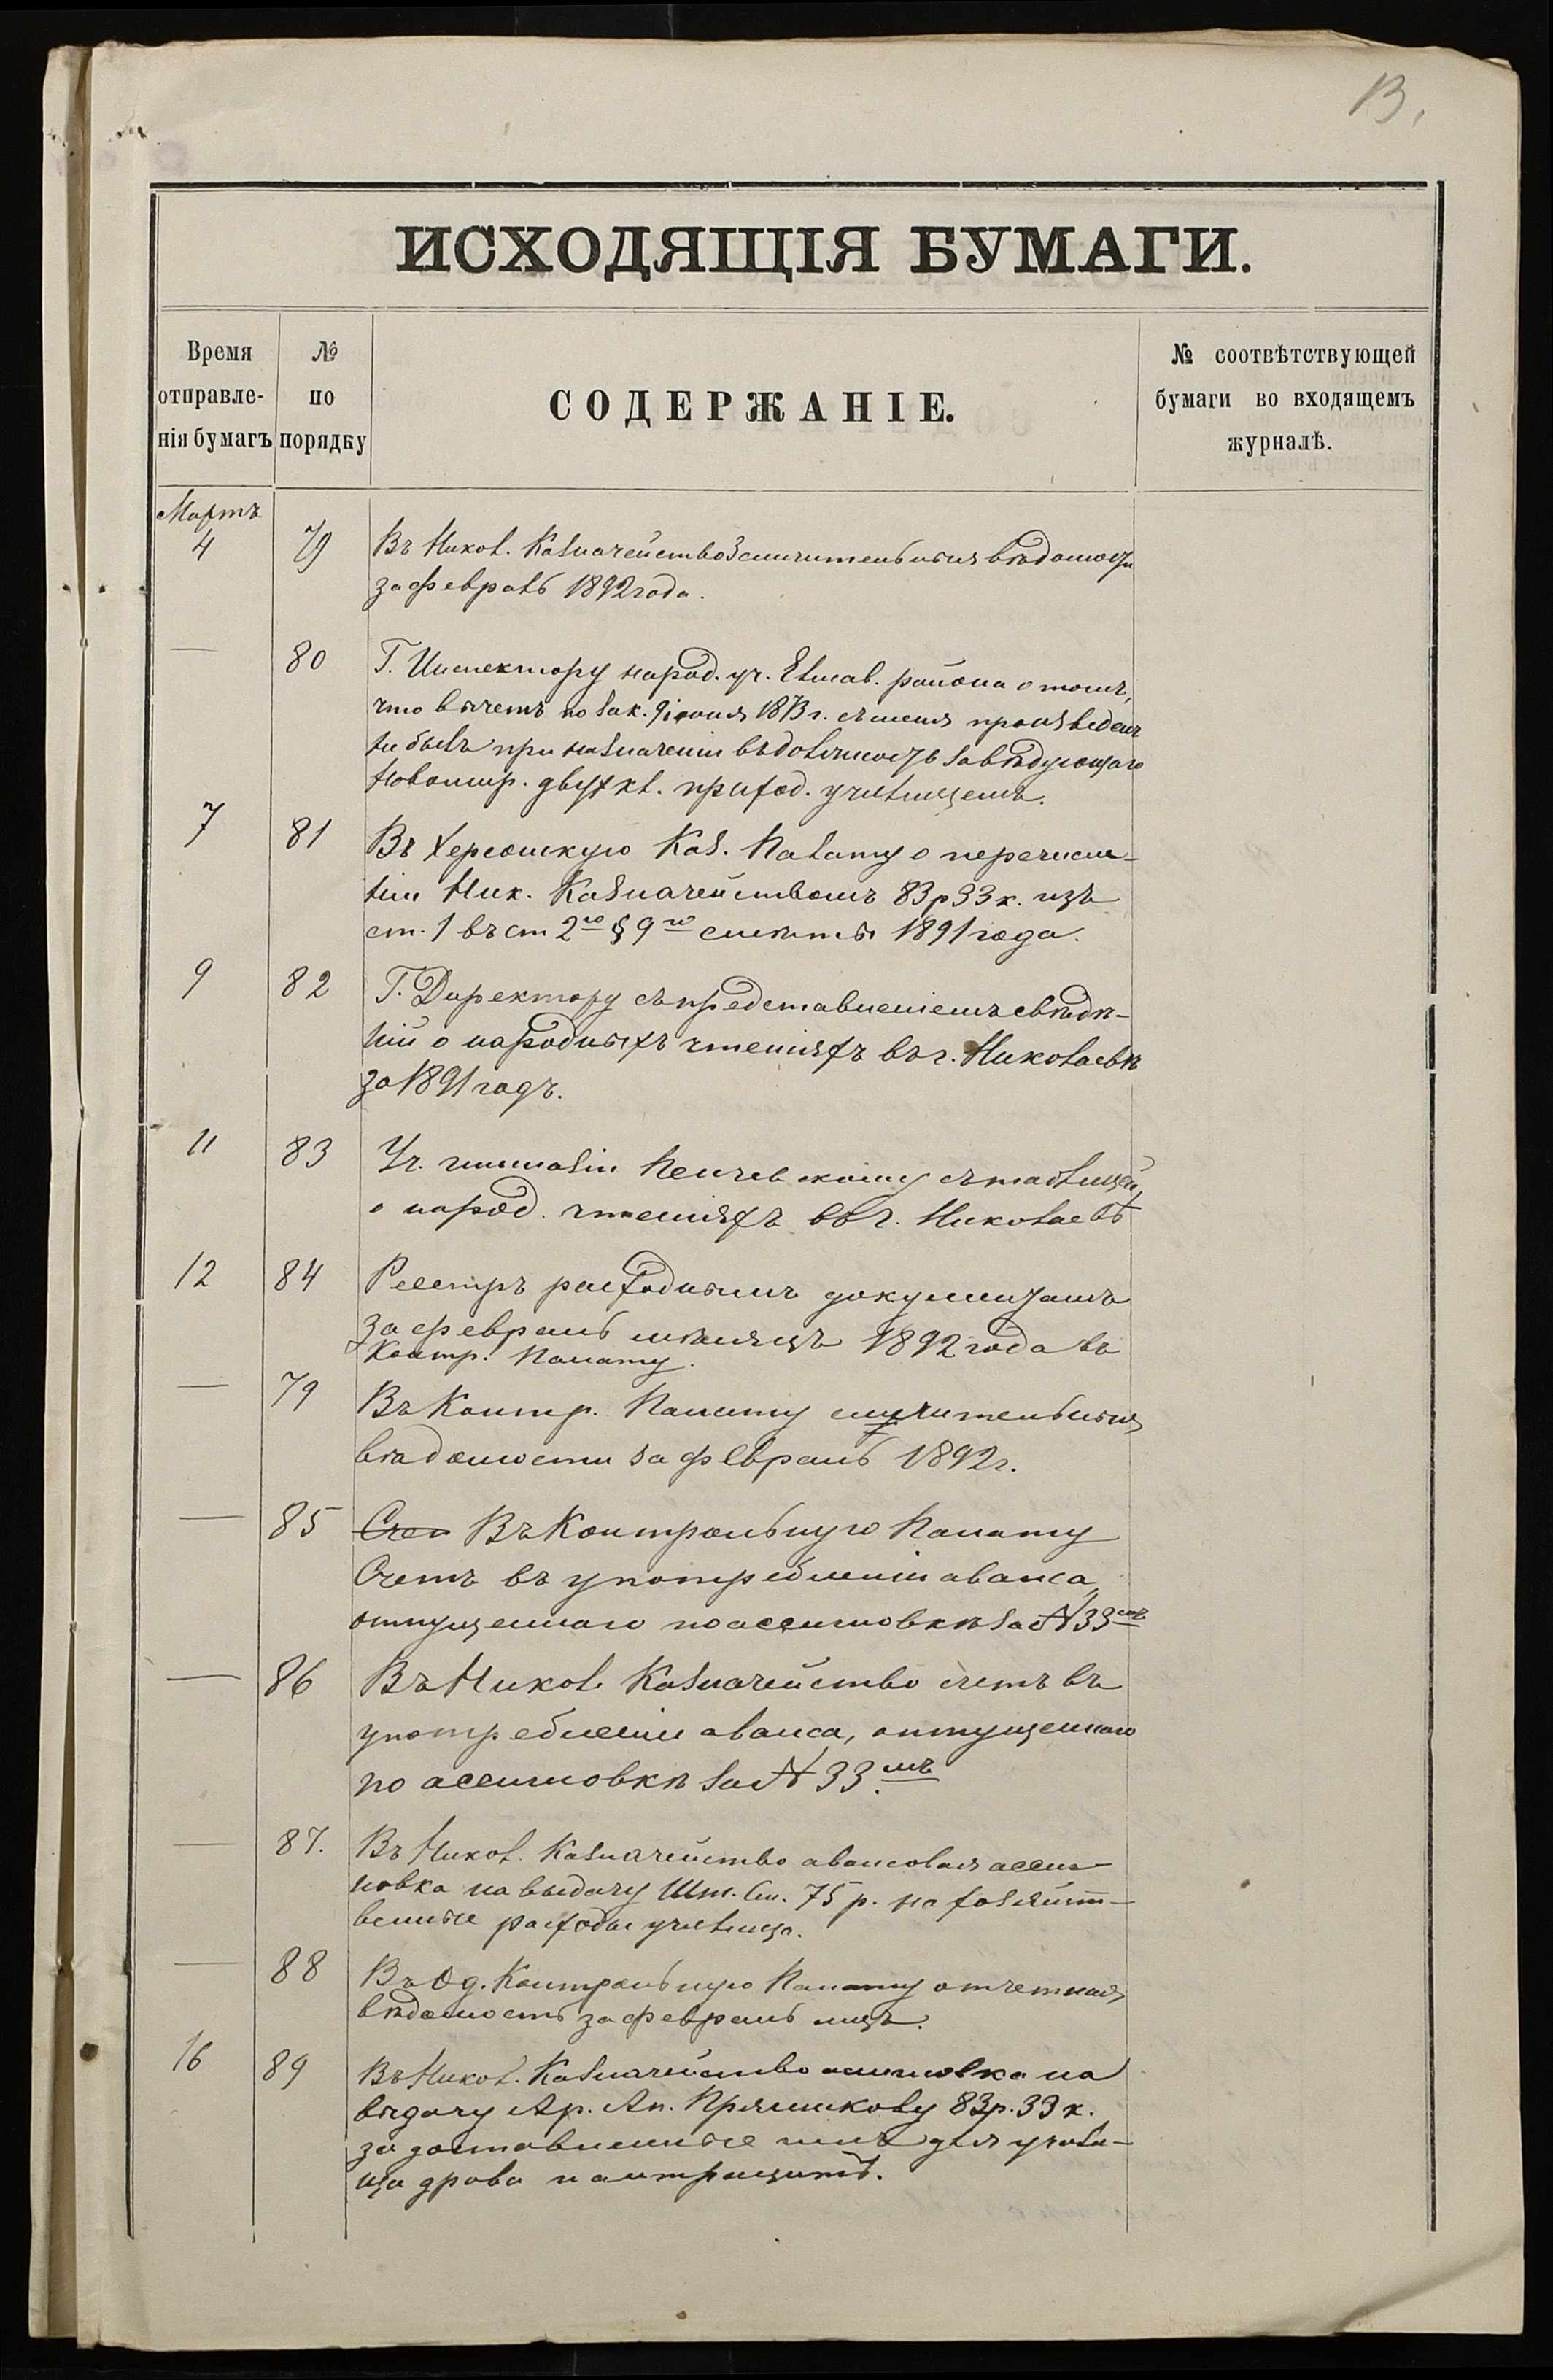 13.
ИСХОДЯЩІЯ БУМАГИ.
Время отправле-нія бумагъ
№ по порядку
СОДЕРЖАНІЕ.
№ соотвѣтствующей бумаги во входящемъ журналѣ.
Мартъ
4 79 Въ Никол. Казначейство 3 сличительныя вѣдомости
за февраль 1892 года.
— 80 Г. Инспектору народ. уч. Елисав. района о томъ,
что вычетъ по зак. 9 іюня 1873 г. съ меня произведенъ
не былъ при назначеніи въ должность завѣдующаго
Новомир. двухкл. приход. училищемъ.
7 81 Въ Херсонскую Каз. Палату о перечисле-
ніи Ник. Казначействомъ 83 р 33 к. изъ
ст. 1 въ ст 2ю § 9го смѣты 1891 года.
9 82 Г. Директору съ представленіемъ свѣдѣ-
ній о народныхъ чтеніяхъ въ г. Николаевѣ
за 1891 годъ.
11 83 Уч. гимназіи съ таблицей
о народ. чтеніяхъ въ г. Николаевѣ
12 84 Реестръ расходнымъ документамъ
за февраль мѣсяцъ 1892 года въ
Контр. Палату.
— 79 Въ Контр. Палату сличительныя
вѣдомости за февраль 1892 г.
— 85 Счет Въ Контрольную Палату
Счетъ въ употребленіи аванса,
отпущеннаго по ассигновкѣ за № 33мъ
— 86 Въ Никол. Казначейство счетъ въ
употребленіи аванса, отпущеннаго
по ассигновкѣ за № 33.мъ
— 87. Въ Никол. Казначейство авансовая ассиг-
новка на выдачу Шт. См. 75 р. на хозяйст-
венные расходы училища.
— 88 Въ Од. Контрольную Палату отчетная
вѣдомость за февраль мцъ.
16 89 Въ Никол. Казначейство ассигновка на
выдачу Ар. Ап. Прямикову 83 р. 33 к.
за доставленные имъ для учили-
ща дрова и антрацитъ.